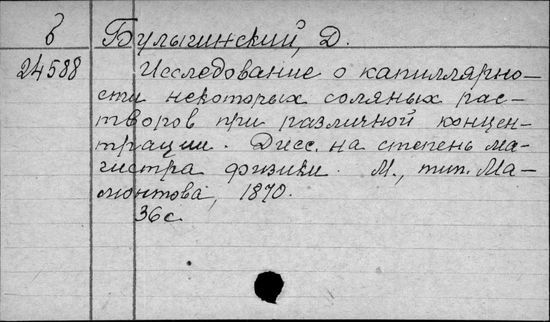 б Булыгинский, Д.
24588 Исследование о капиллярно-
сти некоторых соляных рас-
творов при различной концен-
трации. Дисс. на степень ма-
гистра физики. М., тип. Ма-
монтова, 1870.
36с.